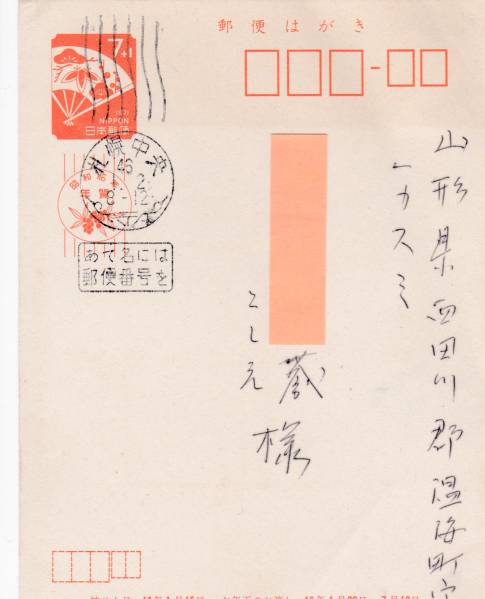 郵便はがき
7+1
1971
NIPPON
日本郵便
札幌中央
46
2
8-12
年賀
あて名には
郵便番号を
山形県西田川郡温海町字
カスミ
蔵
様
こしえ